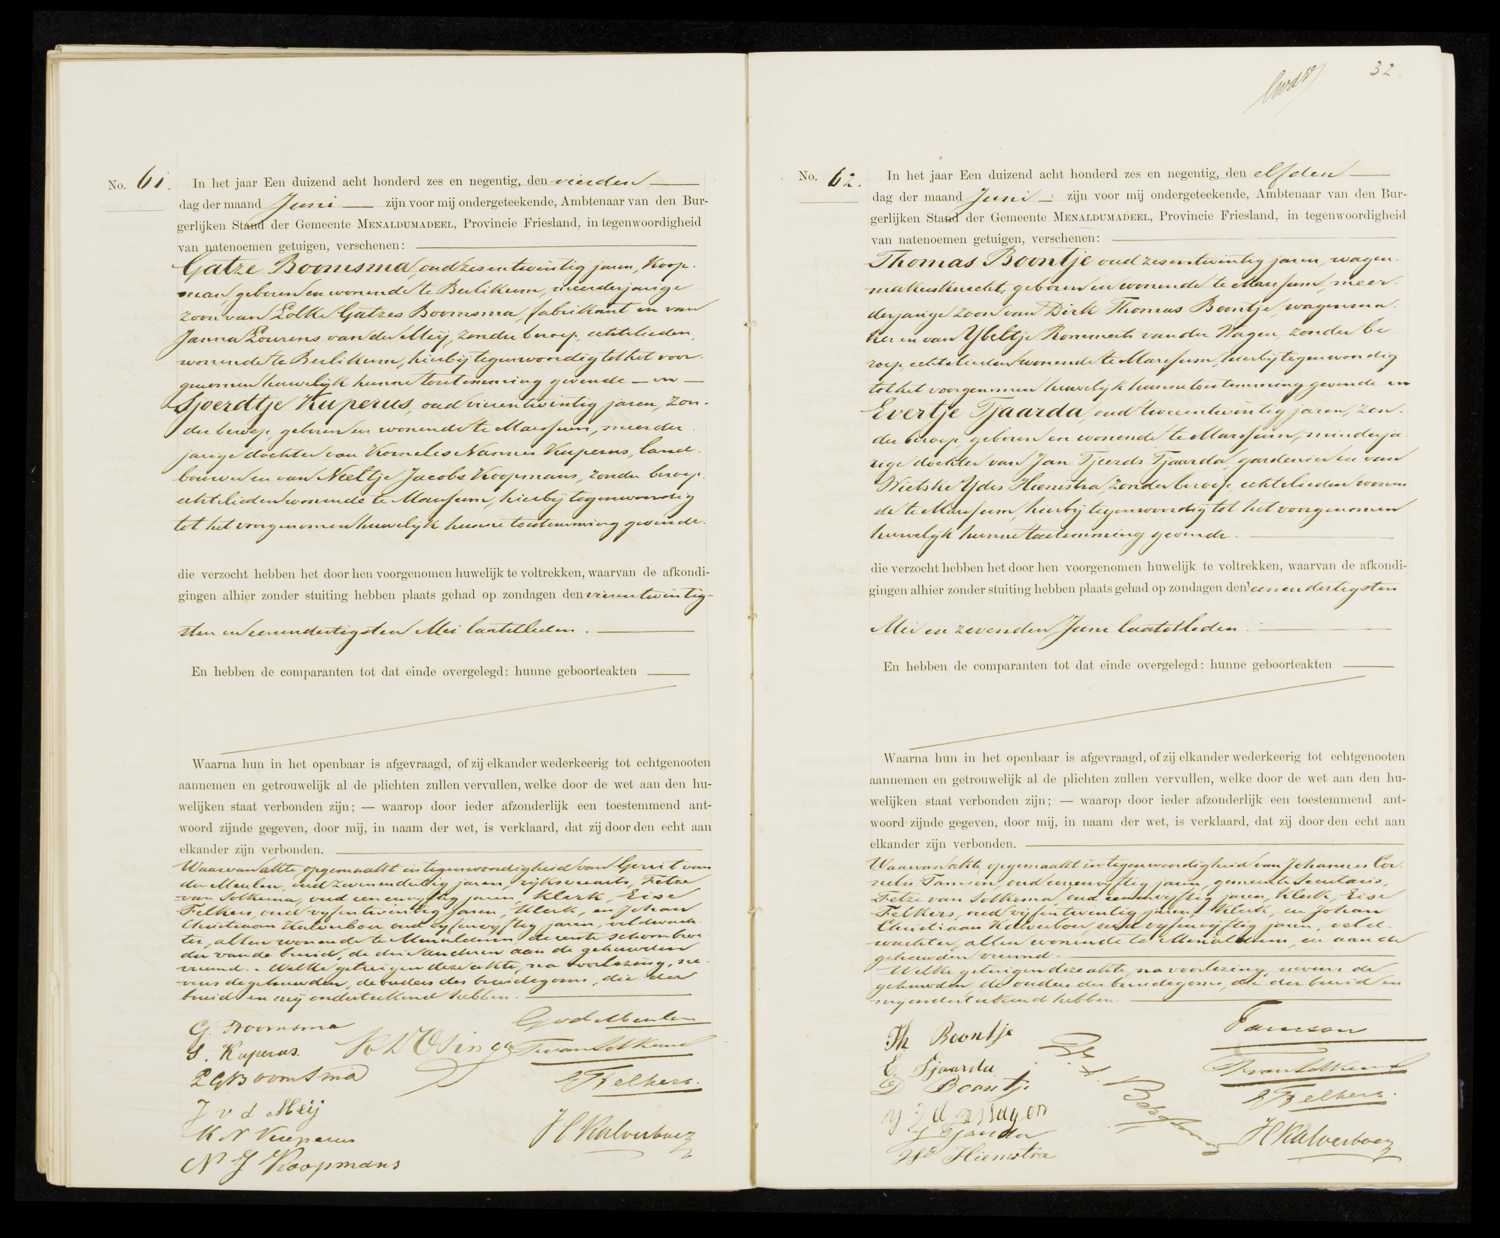 No. 61.
In het jaar Een duizend acht honderd zes en negentig, den vierden
dag der maand Juni zijn voor mij ondergeteekende, Ambtenaar van den Bur-
gerlijken Stand der Gemeente MENALDUMADEEL, Provincie Friesland, in tegenwoordigheid
van natenoemen getuigen, verschenen:
Gatze Boomsma, oud zesentwintig jaren, Koop-
man, geboren en wonende te Berlikum, meerderjarige
zoon van Eolke Gatzes Boomsma, fabrikant en van
Janna Lourens van der Meij, zonder beroep, echtelieden,
wonende te Berlikum, hierbij tegenwoordig tot het voor-
genomen huwelijk hunne toestemming gevende – en –
Sjoerdtje Kuperus, oud vierentwintig jaren, zon-
der beroep, geboren en wonende te Marssum, meerder
jarige dochter van Kornelis Nannes Kuperus, land-
bouwer en van Neeltje Jacobs Koopmans, zonder beroep,
echtelieden wonende te Marssum, hierbij tegenwoordig
tot het voorgenomen huwelijk hunne toestemming gevende.
die verzocht hebben het door hen voorgenomen huwelijk te voltrekken, waarvan de afkondi-
gingen alhier zonder stuiting hebben plaats gehad op zondagen den vierentwintig-
sten en eenendertigsten Mei laatstleden.
En hebben de comparanten tot dat einde overgelegd: hunne geboorteakten
Waarna hun in het openbaar is afgevraagd, of zij elkander wederkeerig tot echtgenooten
aannemen en getrouwelijk al de plichten zullen vervullen, welke door de wet aan den hu-
welijken staat verbonden zijn; — waarop door ieder afzonderlijk een toestemmend ant-
woord zijnde gegeven, door mij, in naam der wet, is verklaard, dat zij door den echt aan
elkander zijn verbonden.
Waarvan akte opgemaakt in tegenwoordigheid van Gerrit van
der Meulen, oud zevenendertig jaren, rijksveearts, Fetze
van Solkema, oud eenenvijftig jaren, klerk, Eise
Felkers, oud vijfentwintig jaren, klerk, en Johan
Christiaan Kalverboer oud vijfenvijftig jaren, veldwach-
ter, allen wonende te Menaldum, de eerste schoonbroe
der van de bruid, de drie anderen aan de gehuwden
vreemd. – Welke getuigen deze akte, na voorlezing, ne-
vens de gehuwden, de ouders des bruidegoms, die der
bruid en mij onderteekend hebben.
G. Boomsma
S. Kuperus
E G Boomsma
J v d Meij
K N Kuperus
N J Koopmans
GvdMeulen
F van Solkema
E Felkers.
J C Kalverboer
32
No. 62.
In het jaar Een duizend acht honderd zes en negentig, den elfden
dag der maand Juni zijn voor mij ondergeteekende, Ambtenaar van den Bur-
gerlijken Stand der Gemeente MENALDUMADEEL, Provincie Friesland, in tegenwoordigheid
van natenoemen getuigen, verschenen:
Thomas Boontje oud zesentwintig jaren, wagen-
makersknecht, geboren en wonende te Marssum, meer-
derjarige zoon van Dirk Thomas Boontje, wagenma-
ker en van Ybeltje Rommerts van der Wagen, zonder be
roep, echtelieden wonende te Marssum, hierbij tegenwoordig
tot het voorgenomen huwelijk hunne toestemming gevende en
Evertje Tjaarda, oud tweeentwintig jaren, zon-
der beroep, geboren en wonende te Marssum, minderja
rige dochter van Jan Tjeerds Tjaarda, gardenier en van
Wietske Ydes Hiemstra, zonder beroep, echtelieden wonen
de te Marssum, hierbij tegenwoordig tot het voorgenomen
huwelijk hunne toestemming gevende.
die verzocht hebben het door hen voorgenomen huwelijk te voltrekken, waarvan de afkondi-
gingen alhier zonder stuiting hebben plaats gehad op zondagen den eenendertigsten
Mei en zevenden Juni laatstleden
En hebben de comparanten tot dat einde overgelegd: hunne geboorteakten
Waarna hun in het openbaar is afgevraagd, of zij elkander wederkeerig tot echtgenooten
aannemen en getrouwelijk al de plichten zullen vervullen, welke door de wet aan den hu-
welijken staat verbonden zijn; — waarop door ieder afzonderlijk een toestemmend ant-
woord zijnde gegeven, door mij, in naam der wet, is verklaard, dat zij door den echt aan
elkander zijn verbonden.
Waarvan akte opgemaakt in tegenwoordigheid van Johannes Cor-
nelis Tamson, oud eenenvijftig jaren, gemeente Secretaris,
Fetze van Solkema, oud eenenvijftig jaren, klerk, Eise
Felkers, oud vijfentwintig jaren, klerk, en Johan
Christiaan Kalverboer, oud vijfenvijftig jaren, veld-
wachter, allen wonende te Menaldum, en aan de
gehuwden vreemd.
Welke getuigen deze akte, na voorlezing, nevens de
gehuwden, de ouders des bruidegoms, die der bruid en
mij onderteekend hebben.
Th Boontje
E Tjaarda
D Boontje
Y R v d Wagen
J Tjaarda
W Hiemstra
Tamson
F van Solkema
E Felkers.
J C Kalverboer